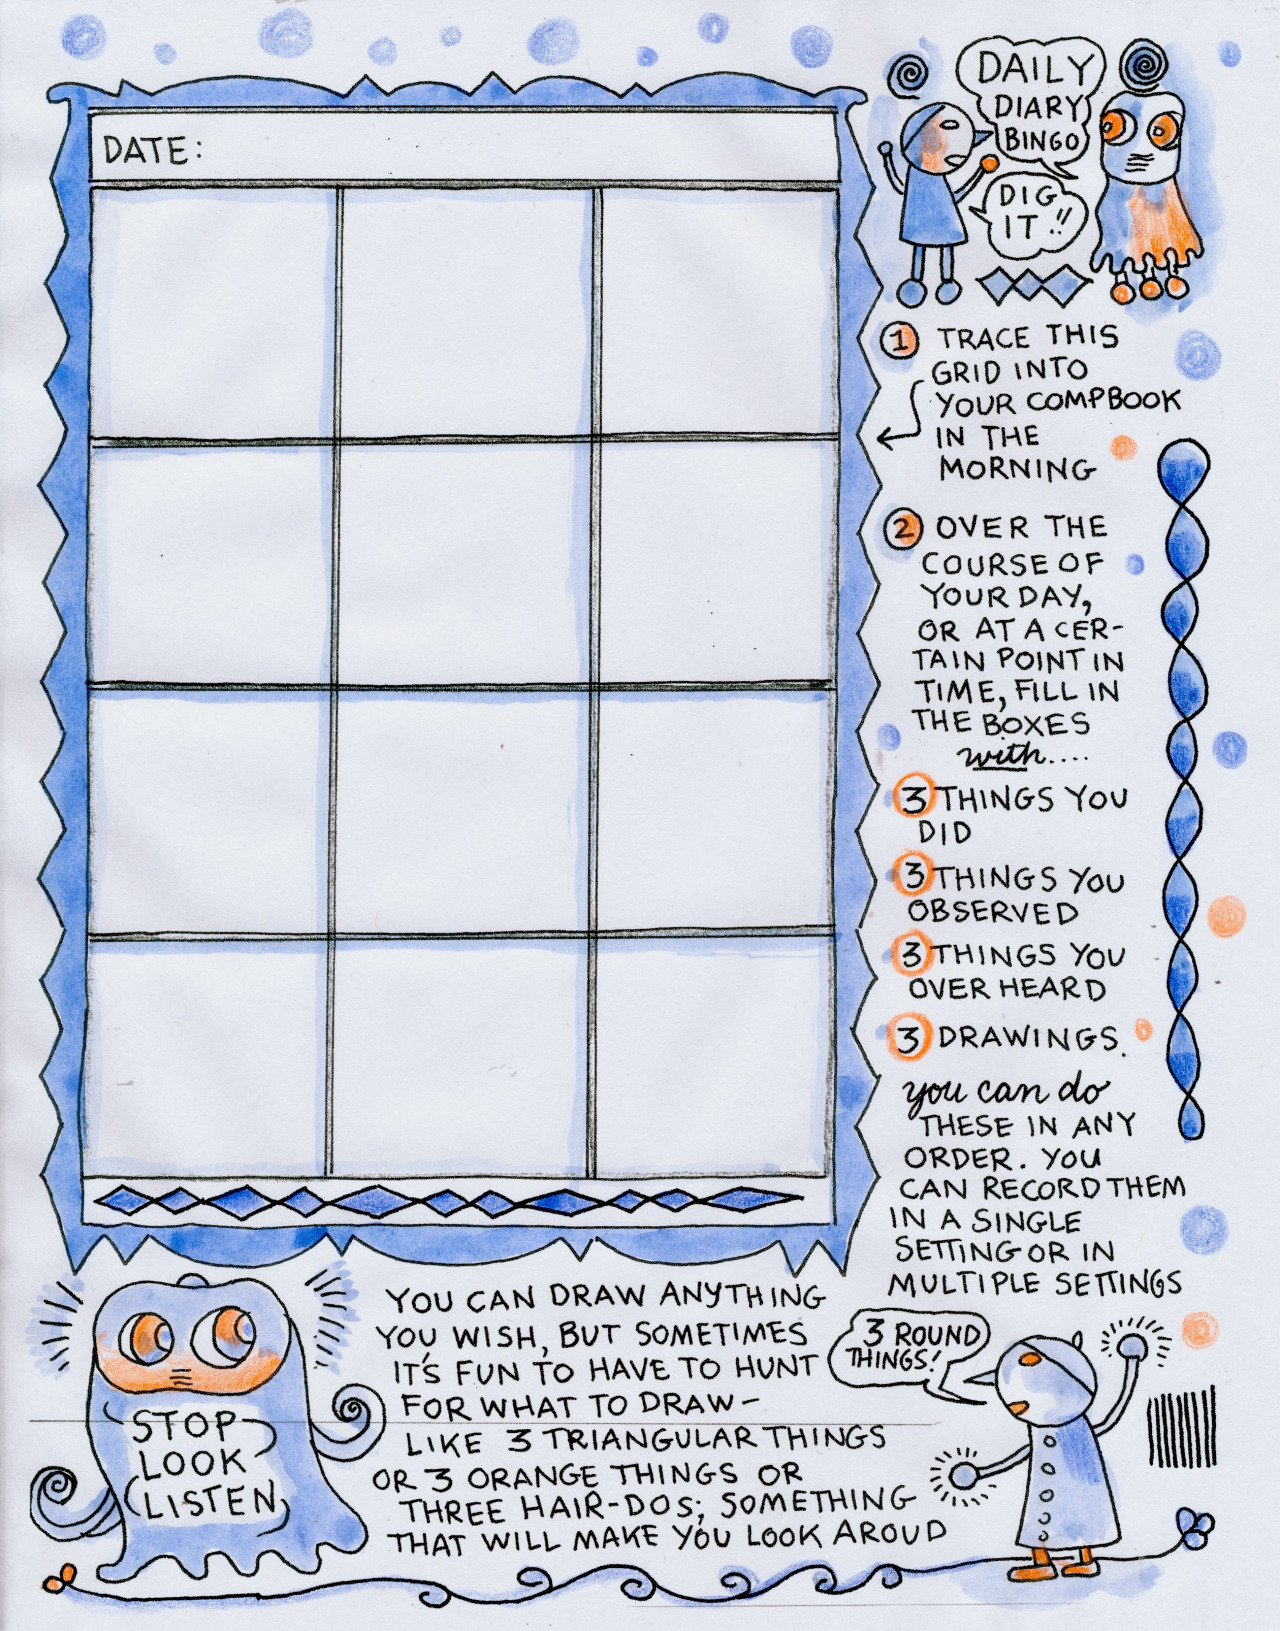 DATE:
DAILY
DIARY
BINGO
DIG
IT!!
1 TRACE THIS
GRID INTO
YOUR COMPBOOK
IN THE
MORNING
2 OVER THE
COURSE OF
YOUR DAY,
OR AT A CER-
TAIN POINT IN
TIME, FILL IN
THE BOXES
with....
3 THINGS YOU
DID
3 THINGS YOU
OBSERVED
3 THINGS YOU
OVER HEARD
3 DRAWINGS.
you can do
THESE IN ANY
ORDER. YOU
CAN RECORD THEM
IN A SINGLE
SETTING OR IN
MULTIPLE SETTINGS
YOU CAN DRAW ANYTHING
YOU WISH, BUT SOMETIMES
IT'S FUN TO HAVE TO HUNT
FOR WHAT TO DRAW-
LIKE 3 TRIANGULAR THINGS
OR 3 ORANGE THINGS OR
THREE HAIR-DOS; SOMETHING
THAT WILL MAKE YOU LOOK AROUD
3 ROUND
THINGS!
STOP
LOOK
LISTEN